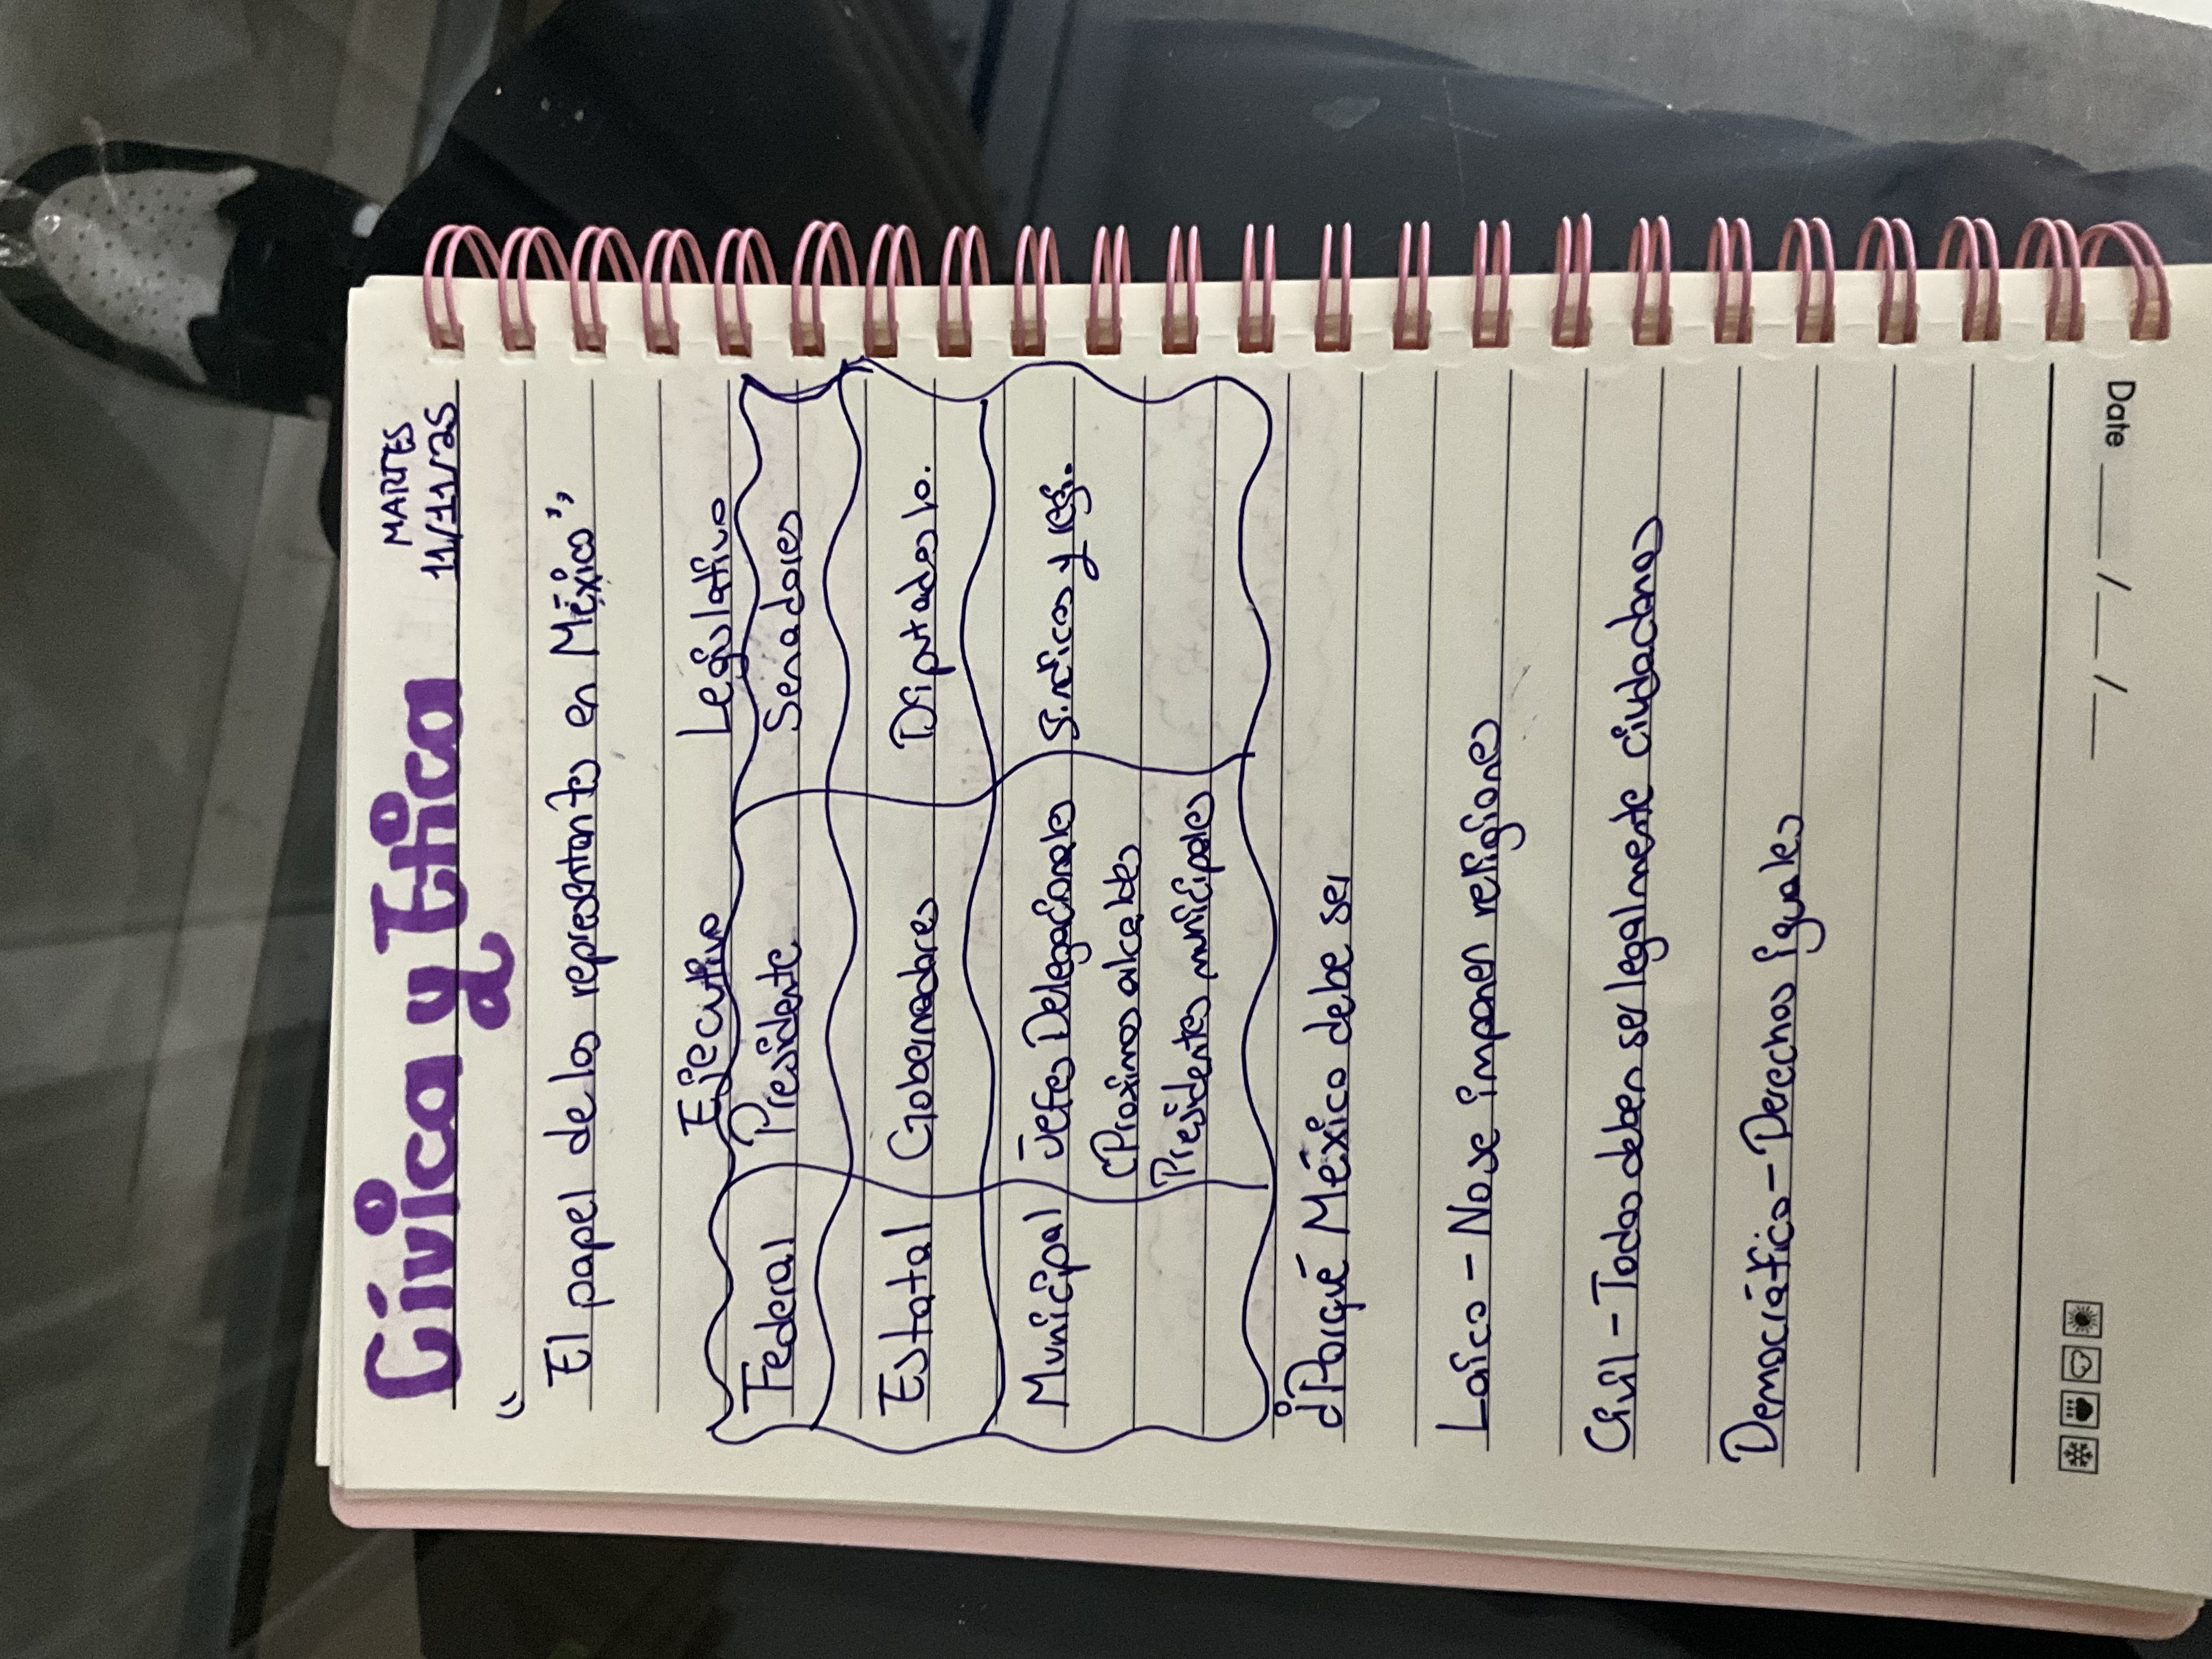 MARTES
Cívica y Ética 11/11/25
"El papel de los representantes en México"
Ejecutivo Legislativo
Federal Presidente Senadores
Estatal Gobernadores Diputados lo.
Municipal Jefes Delegacionales Síndicos y reg.
(Proximos alcaldes
Presidentes municipales
¿Porqué México debe ser
Laico - No se imponen religiones
Civil - Todos deben ser legalmente ciudadanos
Democrático - Derechos iguales
Date / /